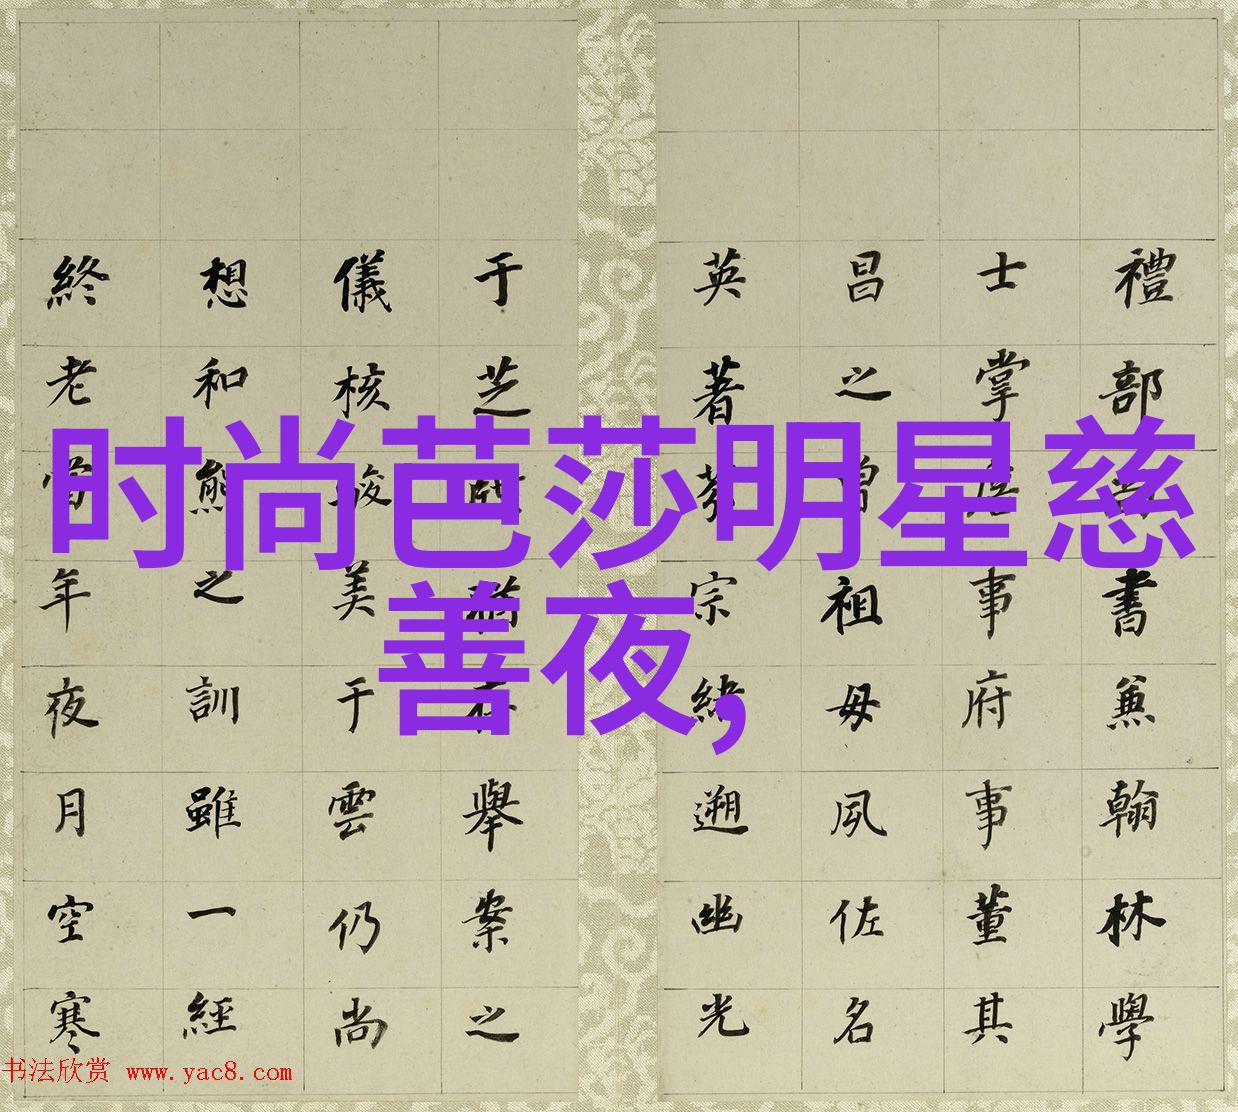 时尚芭莎明星慈
善夜,
禮部書兼翰林學
士掌事府事董其
昌之曾祖母夙佐名
英著宗緒遡幽光
于芝舉案之
儀核駿美于雲仍尚
想和熊之訓雖一經
終老當年夜月空寒
书法欣赏 www.yac8.com